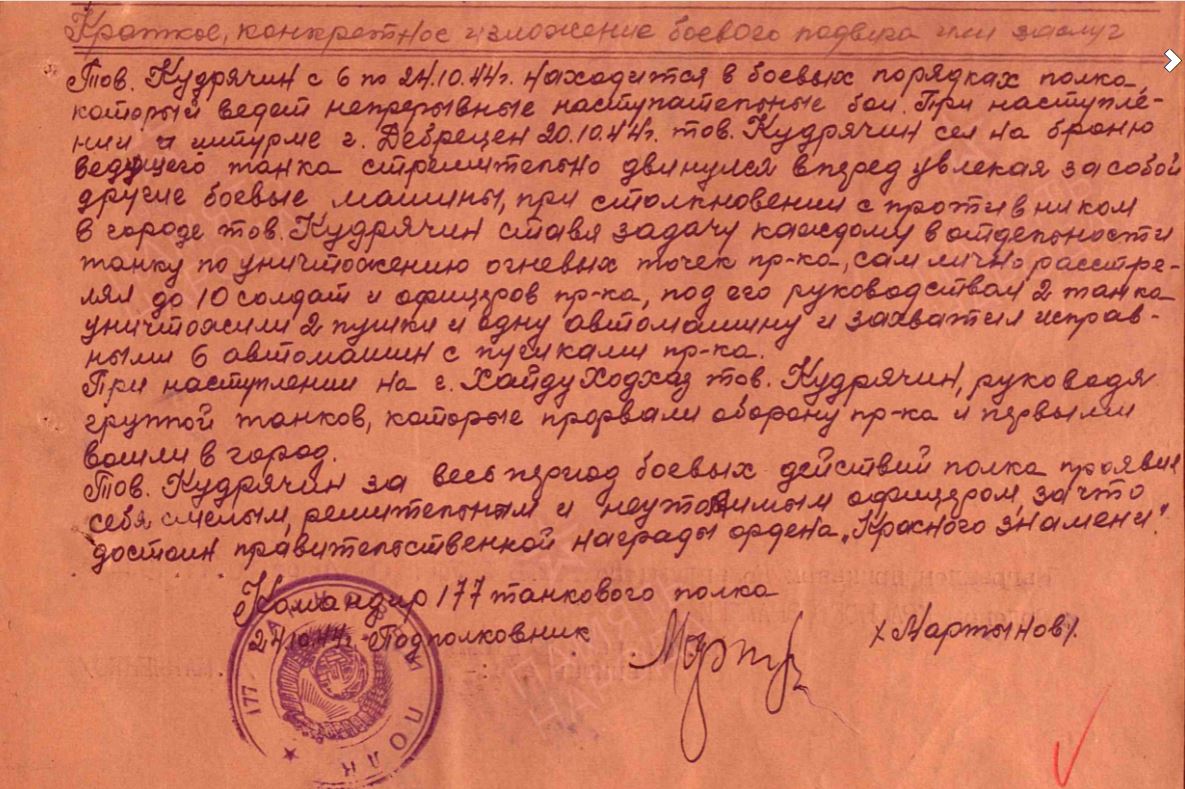 Краткое, конкретное изложение боевого подвига или заслуг
Тов. Кудрячин с 6 по 24.10.44г. находится в боевых порядках полка,
который ведет непрерывные наступательные бои. При наступле-
нии и штурме г. Дебрецен 20.10.44г. тов. Кудрячин сел на броню
ведущего танка стремительно двинулся вперед увлекая за собой
другие боевые машины, при столкновении с противником
в городе тов. Кудрячин ставя задачу каждому в отдельности
танку по уничтожению огневых точек пр-ка, сам лично расстре-
лял до 10 солдат и офицеров пр-ка, под его руководством 2 танка
уничтожили 2 пушки и одну автомашину и захватил исправ-
ными 6 автомашин с пушками пр-ка.
При наступлении на г. Хайду Ходхаз тов. Кудрячин, руководя
группой танков, которые прорвали оборону пр-ка и первыми
вошли в город.
Тов. Кудрячин за весь период боевых действий полка проявил
себя смелым, решительным и неутомимым офицером, за что
достоин правительственной награды ордена „Красного знамени".
Командир 177 танкового полка
24.10.44г. Подполковник /Мартынов/.
177 ТАНКОВЫЙ ПОЛК
ПАМЯТЬ
НАРОДА